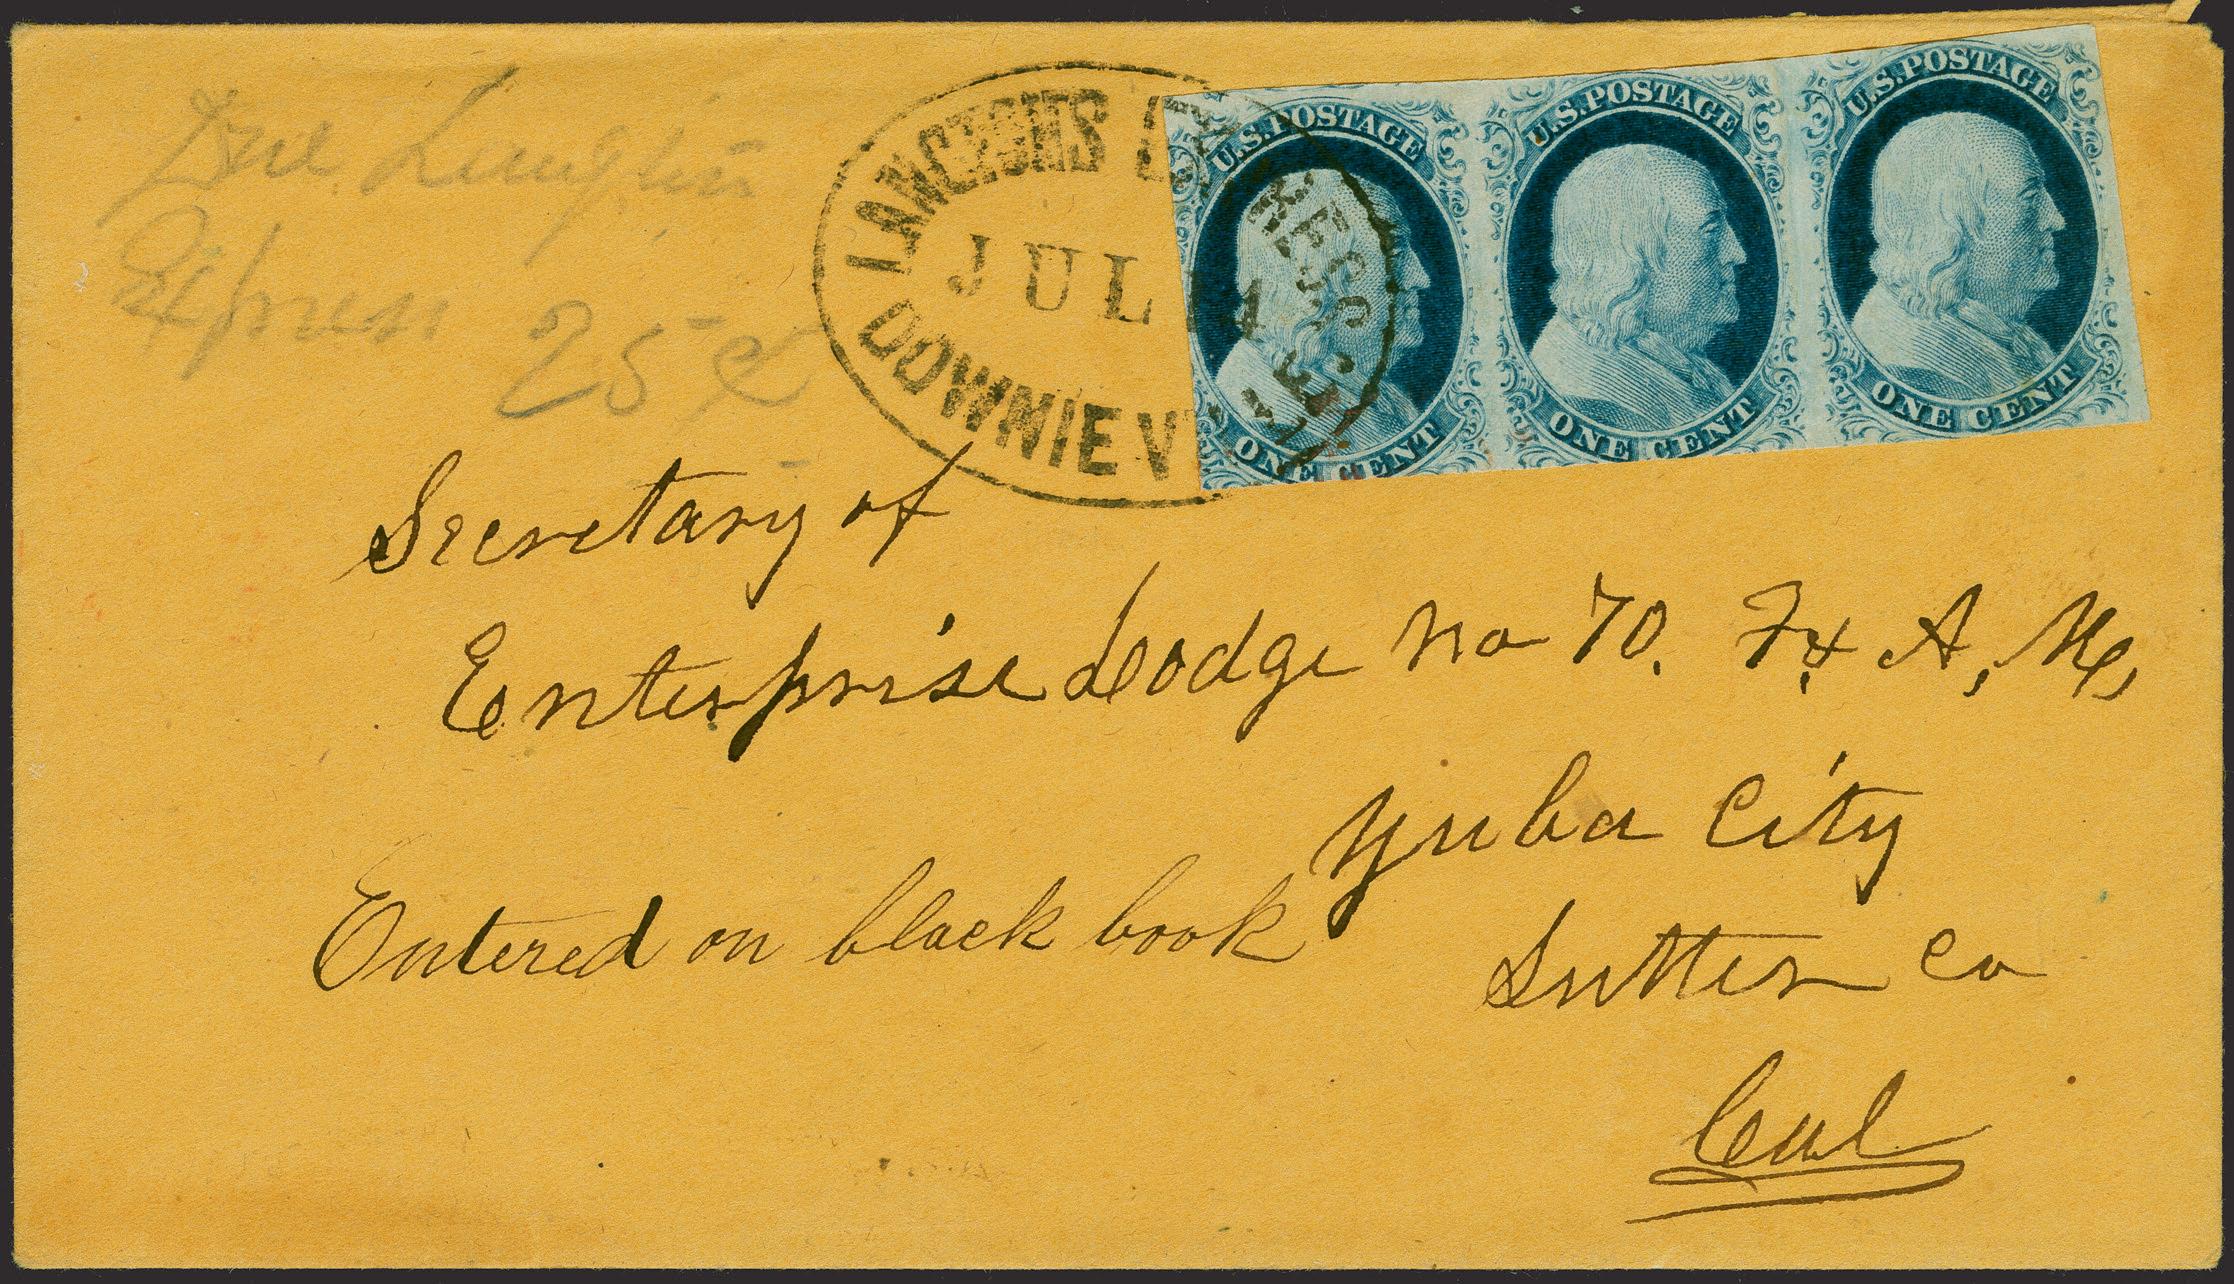 Due Langton
Express 25¢
LANGTON'S EXPRESS.
JUL 14
DOWNIEV
U.S. POSTAGE
ONE CENT
U.S. POSTAGE
ONE CENT
U.S. POSTAGE
ONE CENT
Secretary of
Enterprise Lodge No 70. F. & A, M,
Yuba City
Entered on black book
Sutter Co
Cal